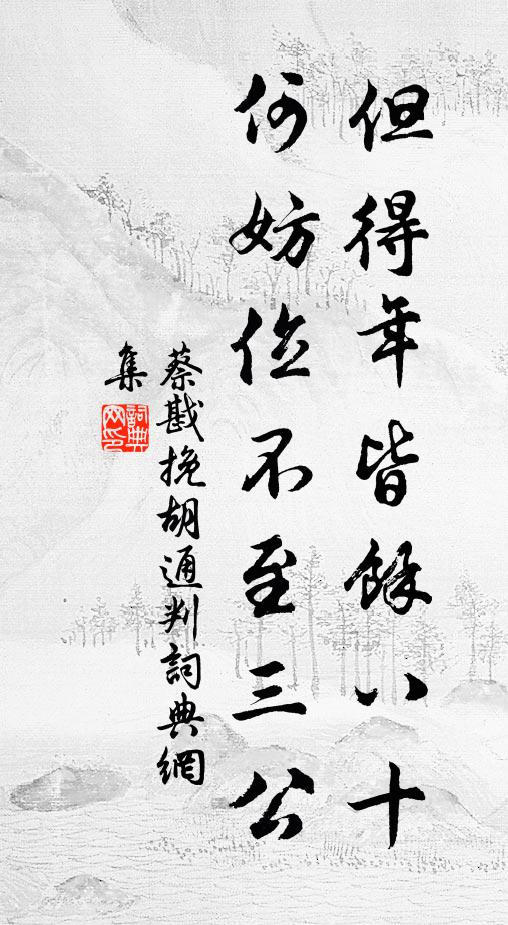 但得年皆餘八十
何妨位不至三公
蔡戡挽胡通判詞典網
集
詞典網印